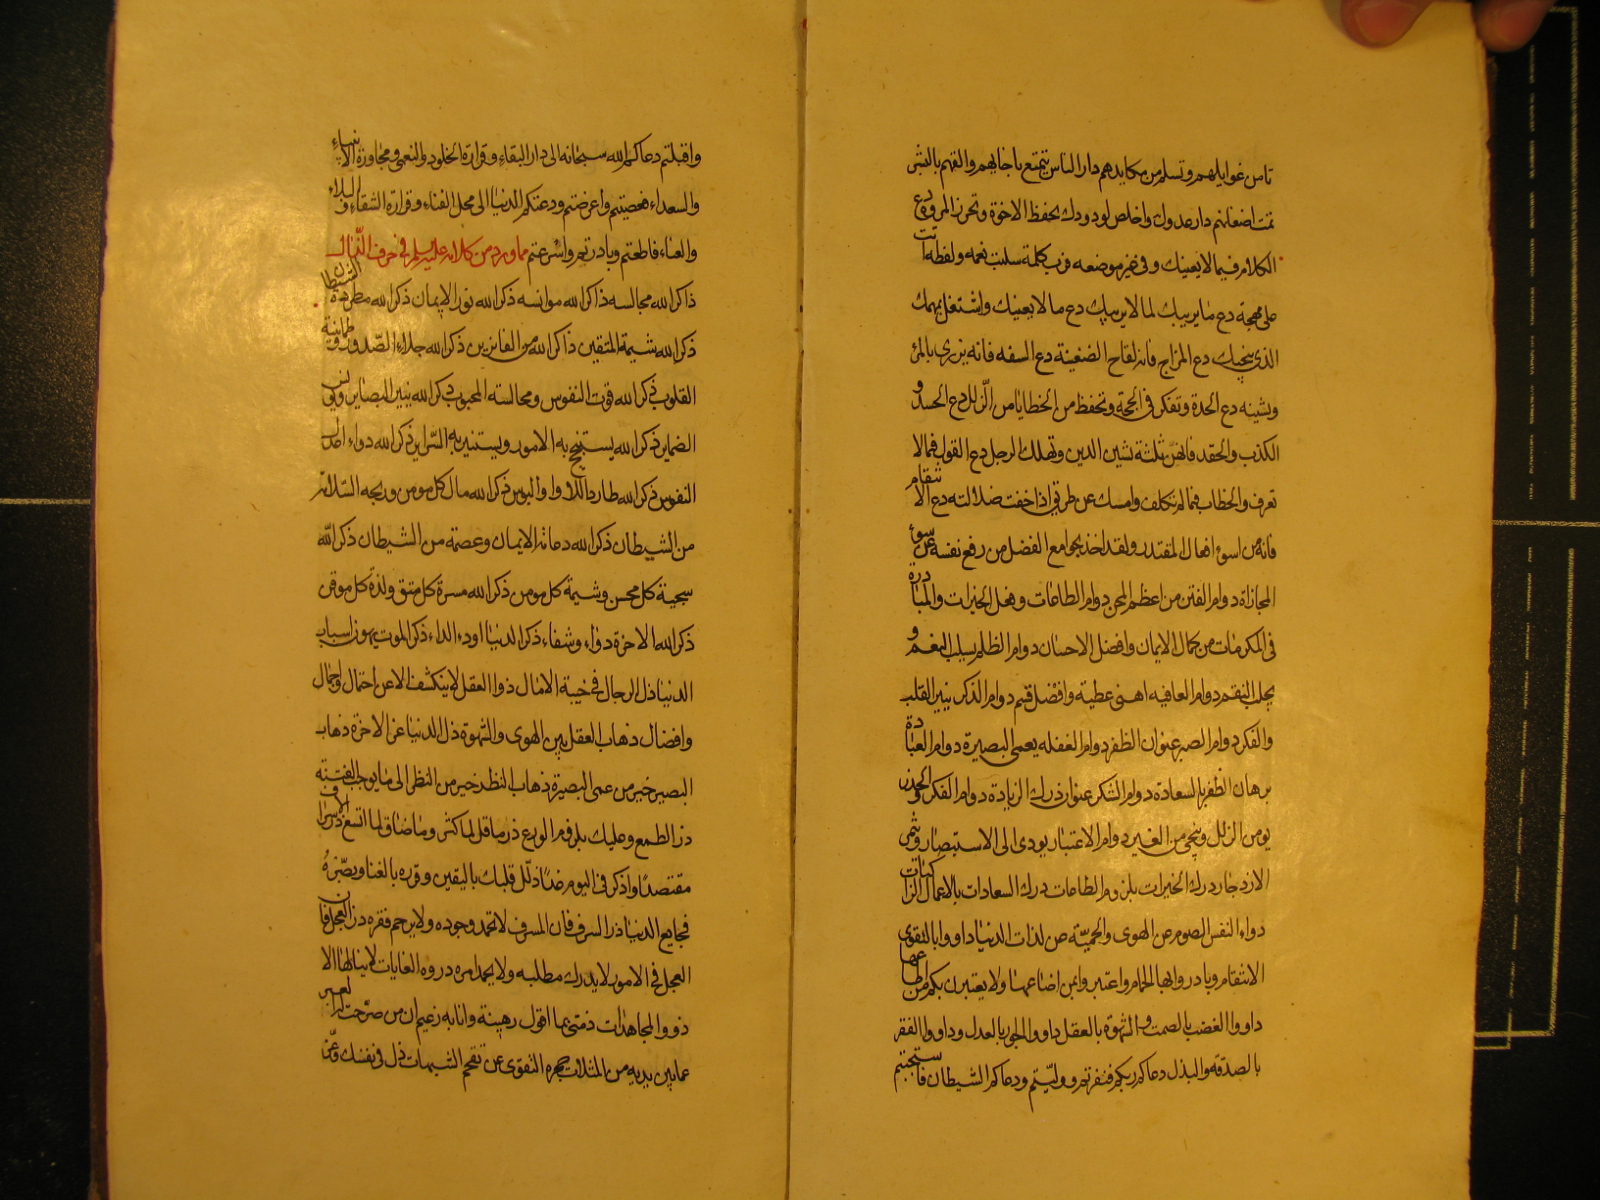 تامن غوايلهم وتسلم من مكايدهم دار الناس تتمتع باخايهم والقهم بالبشر
تمت اضغانهم دار عدوك واخلص لودودك بحفظ الاخوة وتحرز المروة دع
الكلام فيما لا يعنيك وفي غير موضعه فرب كلمة سلبت نعمه ولفظه اتت
على مهجة دع ما يريبك لما لا يريبك دع ما لا يعنيك واشتغل بمهمك
الذي ينجيك دع المزاح فانه لقاح الضغينة دع السفه فانه يزري بالمرء
ويشينه دع الحدة وتفكر في الحجة وتحفظ من الخطايا من الزلل دع الحسد و
الكذب والحقد فانهن ثلثة تشين الدين وتهلك الرجل دع القول فيما لا
تعرف والخطاب فيما لم تكلف وامسك عن طريق اذا خفت ضلالته دع الانتقام
فانه من اسوء افعال المقتدر ولقد اخذ بجوامع الفضل من رفع نفسه عن سوء
المجازاة دوام الفتن من اعظم المحن دوام الطاعات وفعل الخيرات والمبادرة
في المكرمات من كمال الايمان وافضل الاحسان دوام الظلم يسلب النعم و
يجلب النقم دوام العافيه اهنى عطية وافضل قسم دوام الذكر ينير القلب
والفكر دوام الصبر عنوان الظفر دوام الغفله يعمى البصيرة دوام العبادة
برهان الظفر بالسعادة دوام الشكر عنوان درك الزيادة دوام الفكر والحذر
يومن الزلل وينجي من الغير دوام الاعتبار يودى الى الاستبصار ويثمر
الازدجار درك الخيرات بلزوم الطاعات درك السعادات بالاعمال الزاكيات
دواء النفس الصوم عن الهوى والحمية عن لذات الدنيا داووا بالتقوى
الانتقام وبادروا بها الحمام واعتبروا بمن اضاعها ولا يعتبرن بكم من اطاعها
داووا الغضب بالصمت والشهوة بالعقل داووا الجور بالعدل وداووا الفقر
بالصدقه والبذل دعاكم ربكم فنفرتم ووليتم ودعاكم الشيطان فاستجبتم
واقبلتم دعاكم الله سبحانه الى دار البقاء وقرارة الخلود والنعمى ومجاورة الانبياء
والسعداء فعصيتم واعرضتم ودعتكم الدنيا الى محل الفناء وقرارة الشقاء و البلاء
والعناء فاطعتم وبادرتم واسرعتم مما ورد من كلامه عليه السلم في حرف الذال
ذاكر الله مجالسه ذاكر الله موانسه ذكر الله نور الايمان ذكر الله مطردة الشيطان
ذكر الله شيمة المتقين ذاكر الله من الفايزين ذكر الله جلاء الصدور وطمانينة
القلوب ذكر الله قوت النفوس ومجالسته المحبوب ذكر الله ينير البصاير ويونس
الضماير ذكر الله يستنجح به الامور ويستنير به السراير ذكر الله دواء اعلال
النفوس ذكر الله طارد اللاواء والبوس ذكر الله مال كل مومن وربحه السلامة
من الشيطان ذكر الله دعامة الايمان وعصمة من الشيطان ذكر الله
سجية كل محسن وشيمة كل مومن ذكر الله مسرة كل متق ولذة كل موقن
ذكر الله الاخرة دواء وشفاء ذكر الدنيا ادوء الداء ذكر الموت يهون اسباب
الدنيا ذل الرجال في خيبة الامال ذوا العقل لا ينكشف الا عن احتمال واجمال
وافضال ذهاب العقل بين الهوى والشهوة ذل الدنيا عز الاخرة ذهاب
البصر خير من عمى البصيرة ذهاب النظر خير من النظر الى ما يوجب الفتنة
ذر الطمع وعليك بلزوم الورع ذر ما قل لما كثر وما ضاق لما اتسع ذر الاسراف
مقتصدا واذكر في اليوم غدا ذلل قلبك باليقين وقرره بالفنا وبصره
فجايع الدنيا ذر السرف فان المسرف لا تحمد وجوده ولا يرحم فقره ذر العجل فان
العجل في الامور لا يدرك مطلبه ولا يحمد امره ذروه الغايات لا ينالها الا
ذووا المجاهدات ذمتي بما اقول رهينة وانا به زعيم ان من صرحت له العبر
عما بين يديه من المثلات حجزه التقوى عن تقحم الشبهات ذل في نفسك وعز